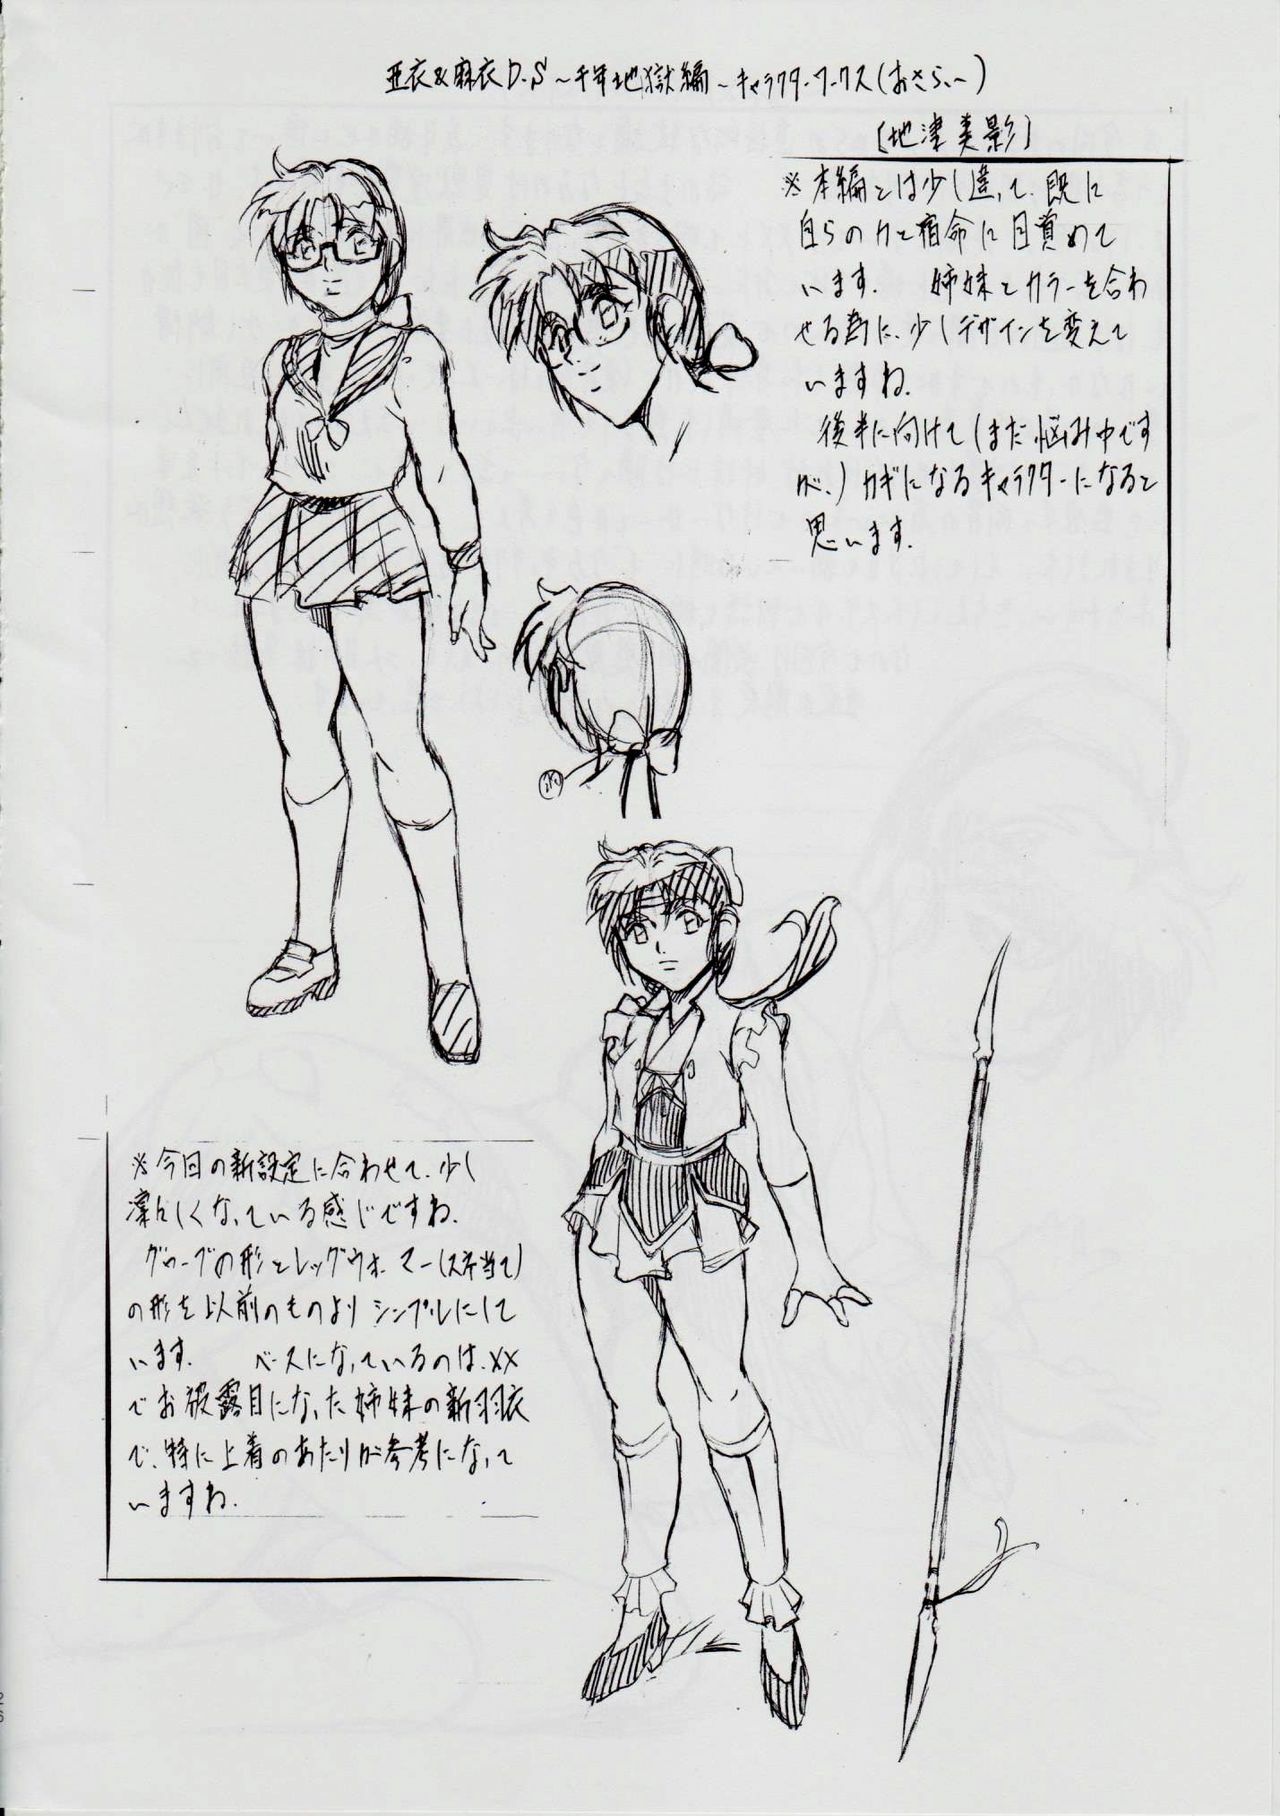 亜衣&麻衣D.S～千年地獄編～キャラクターワークス(おさらい)
[地津美影]
※本編とは少し違って、既に
自らの力と宿命に目覚めて
います。 姉妹とカラーを合わ
せる為に、少しデザインを変えて
いますね。
後半に向けて(まだ悩み中です
が、)カギになるキャラクターになると
思います。
※今回の新設定に合わせて、少し
凛々しくなっている感じですね。
グローブの形とレッグウォーマー(スネ当て)
の形を以前のものよりシンプルにして
います。 ベースになっているのは、XX
でお披露目になった姉妹の新羽衣
で、特に上着のあたりが参考になって
いますね。
26